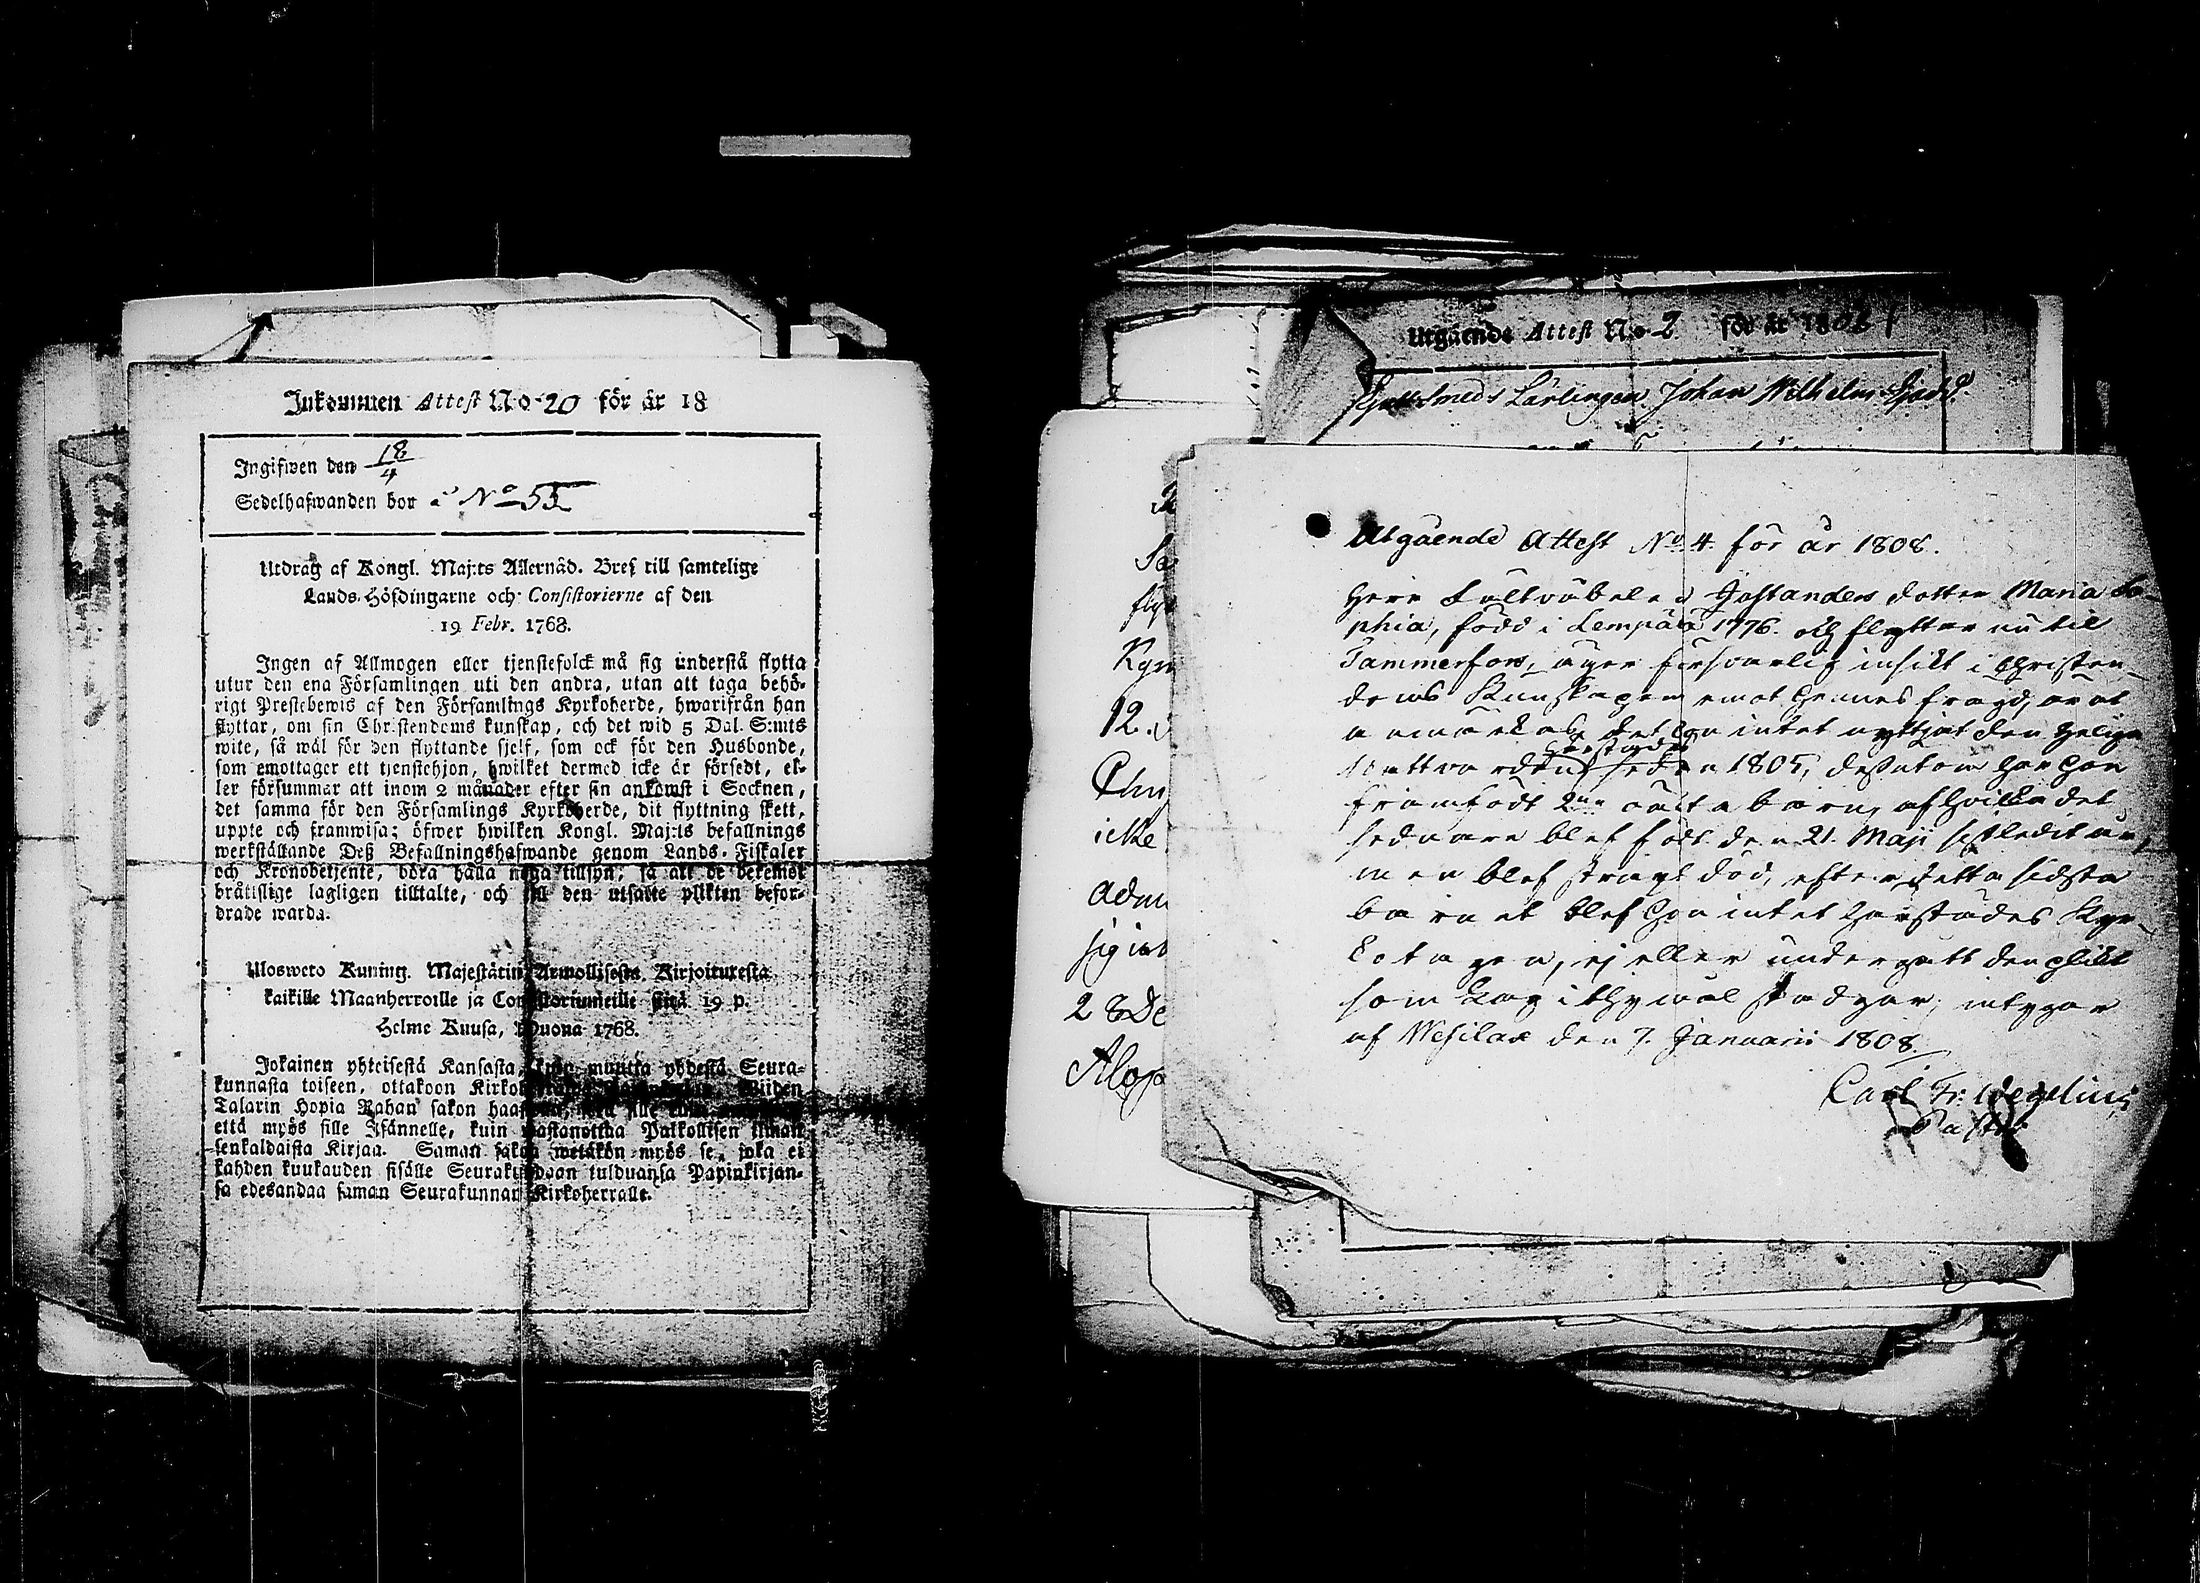 Inkommen Attest No 20 för år 18
Ingifwen den 18/4
Sedelhafwanden bor å No 55
Utdrag af Kongl. Maj:ts Allernåd. Bref till samtelige
Lands-Höfdingarne och Consistorierne af den
19 Febr. 1768.
Ingen af Allmogen eller tjenstefolck må sig understå flytta
utur den ena Församlingen uti den andra, utan att taga behö-
rigt Prestebewis af den Församlings Kyrkoherde, hwarifrån han
flyttar, om sin Christendoms kunskap, och det wid 5 Dal. S:mts
wite, så wäl för den flyttande sjelf, som ock för den Husbonde,
som emottager ett tjenstehjon, hwilket dermed icke är försedt, el-
ler försummar att inom 2 månader efter sin ankomst i Socknen,
det samma för den Församlings Kyrkoherde, dit flyttning skett,
uppte och framwisa; öfwer hwilken Kongl. Maj:ts befallnings
werkställande Deß Befallningshafwande genom Lands-Fiskaler
och Kronobetjente, böra hålla noga tillsyn, så att de
bråtislige lagligen tilltalte, och till den utsatte plikten befor-
drade warda.
Ulosweto Kuning. Majestätin Armollisesta Kirjoituxesta
kaikille Maanherroille ja Consistoriumeille siitä 19 p.
Helme Kuusa, Wuona 1768.
Jokainen yhteisestä Kansasta, muutta yhdestä Seura-
kunnasta toiseen, ottakoon Wiiden
Talarin Hopia Rahan sakon
että myös sille Isännelle, kuin wastanottaa Palkollisen ilman
senkaldaista Kirjaa. Saman sakon wetäkön myös se, joka ei
kahden kuukauden sisälle Seurakundaan tulduansa Papinkirjan-
sa edesandaa saman Seurakunnan Kirkoherralle.
Utgående Attest No 2. för år 1808
Smeds Lärlingen Johan Wilhelm
Kyr
12.
Chri
icke
Adm
sig int
2
Utgående Attest No 4. för år 1808.
Herr Fältväbelen Justanders dotter Maria So-
phia, född i Lempälä 1776. och flyttar nu til
Tammerfors, äger försvarlig insikt i Christen-
doms Kunskapen emot hennes frägd, är at
anmärka, det hon intet nyttjat den Helige
härstädes
Nattvarden sedan 1805, desutom har hon
framfödt 2ne oäkta barn, af hvilka det
sednare blef födt den 21. Maji sistledit år,
men blef straxt död, efter detta sidsta
barnet blef hon intet härstädes Kyr-
kotagen, ej eller undergått den plikt
som Lag i thy mål stadgar, intygar
af Wesilax den 7. Januarii 1808.
Carl Fr: Wegelius
Pastor